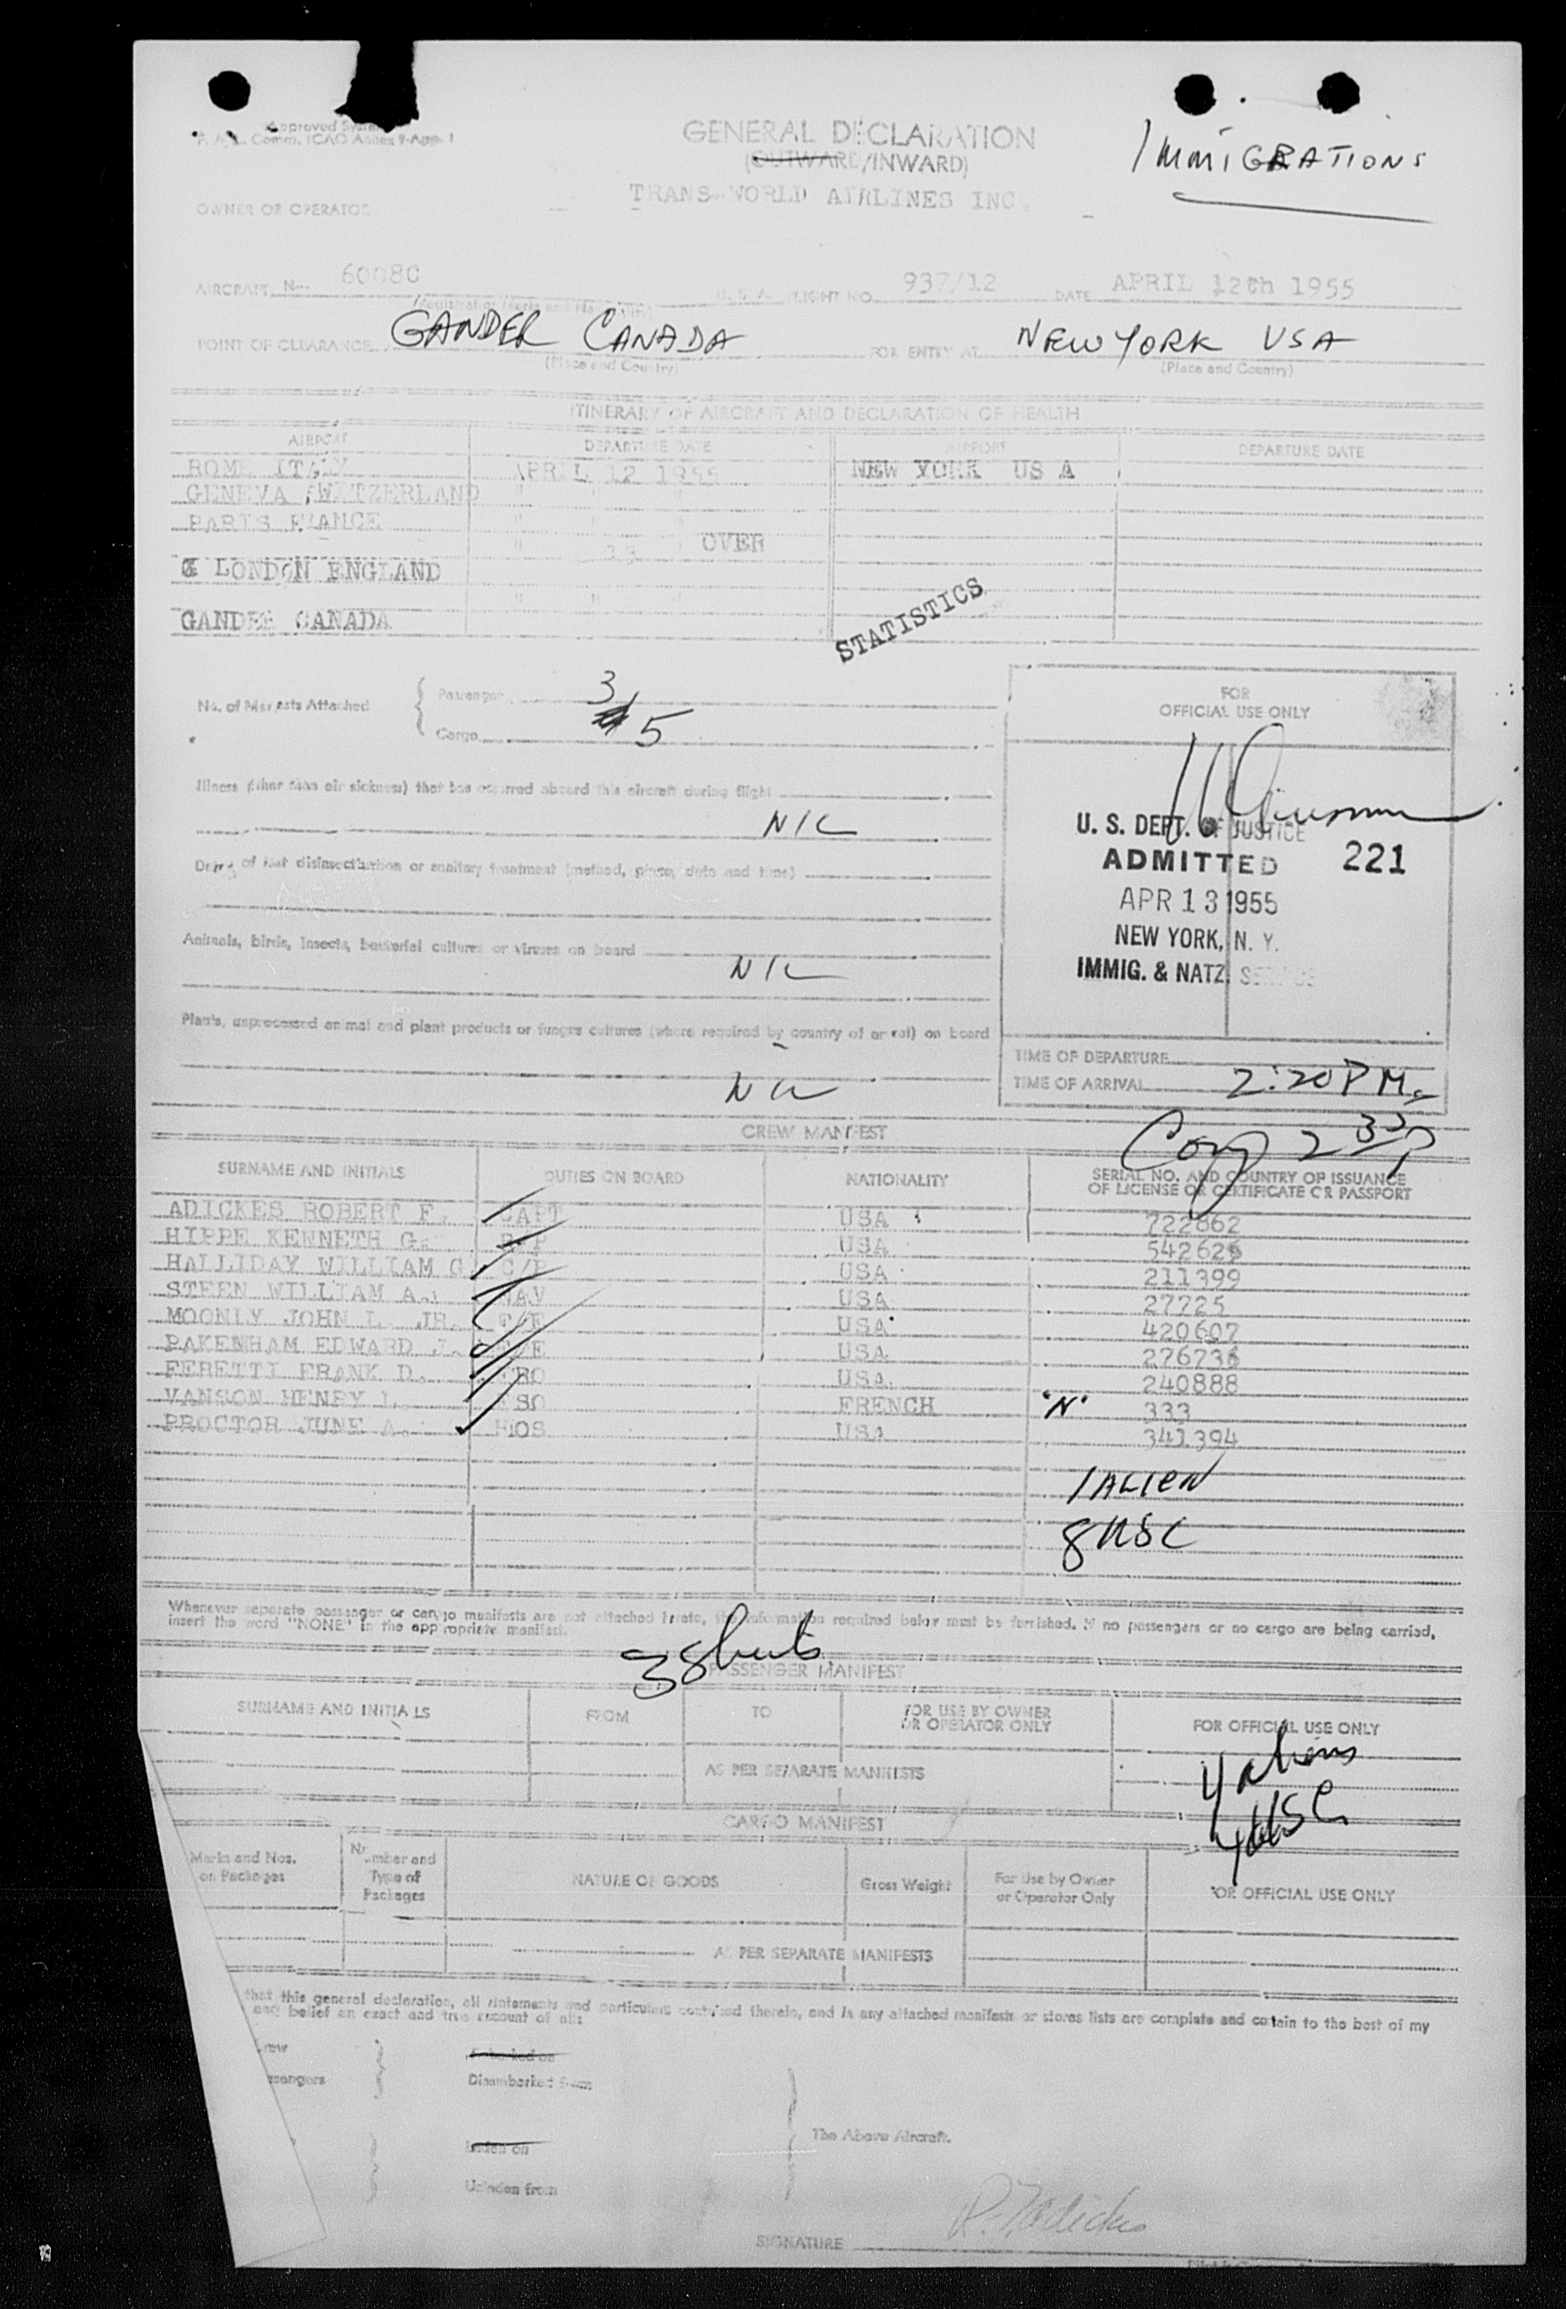 Approved
Comm. ICAO Annex 9-App. 1
GENERAL DECLARATION
(OUTWARD/INWARD)
IMMIGRATIONS
TRANS WORLD AIRLINES INC.
OWNER OR OPERATOR
AIRCRAFT N- 6008C FLIGHT NO. 937/12 DATE APRIL 12th 1955
POINT OF CLEARANCE GANDER CANADA FOR ENTRY AT NEW YORK USA
(Place and Country) (Place and Country)
ITINERARY OF AIRCRAFT AND DECLARATION OF HEALTH
AIRPORT DEPARTURE DATE AIRPORT DEPARTURE DATE
ROME ITALY APRIL 12 1955 NEW YORK US A
GENEVA SWITZERLAND " " "
PARIS FRANCE " " "
" OVER
LONDON ENGLAND
" "
GANDER CANADA
STATISTICS
No. of Manifests Attached { Passenger 3
Cargo 5
FOR
OFFICIAL USE ONLY
Illness (other than air sickness) that has occurred aboard this aircraft during flight
NIL
U. S. DEPT. OF JUSTICE
ADMITTED 221
APR 13 1955
NEW YORK, N. Y.
IMMIG. & NATZ. SERVICE
Details of last disinsectization or sanitary treatment (method, place, date and time)
Animals, birds, insects, bacterial cultures or viruses on board
NIL
Plants, unprocessed animal and plant products or fungus cultures (where required by country of arrival) on board
NIL
TIME OF DEPARTURE
TIME OF ARRIVAL 2:20 PM.
CREW MANIFEST
SURNAME AND INITIALS DUTIES ON BOARD NATIONALITY SERIAL NO. AND COUNTRY OF ISSUANCE
OF LICENSE OR CERTIFICATE OR PASSPORT
ADICKES ROBERT F. CAPT USA 722862
HIPPE KENNETH G. USA 542626
HALLIDAY WILLIAM G USA 211399
STEEN WILLIAM A. NAV USA 27725
MOONLY JOHN L. JR. F/E USA 420607
PAKENHAM EDWARD J. F/E USA 276736
FERETTI FRANK D. USA 240888
VANSON HENRY L. FRENCH "N" 333
PROCTOR JUNE A. HOS USA 341394
1 ALIEN
8 USC
Whenever separate passenger or cargo manifests are not attached hereto, the information required below must be furnished. If no passengers or no cargo are being carried,
insert the word "NONE" in the appropriate manifest.
3 Sheets
PASSENGER MANIFEST
SURNAME AND INITIALS FROM TO FOR USE BY OWNER
OR OPERATOR ONLY FOR OFFICIAL USE ONLY
AS PER SEPARATE MANIFESTS
aliens
USC
CARGO MANIFEST
Marks and Nos.
on Packages Number and
Type of
Packages NATURE OF GOODS Gross Weight For Use by Owner
or Operator Only FOR OFFICIAL USE ONLY
AS PER SEPARATE MANIFESTS
that this general declaration, all statements and particulars contained therein, and in any attached manifests or stores lists are complete and certain to the best of my
and belief an exact and true account of all:
Embarked on
Disembarked from
Laden on
The Above Aircraft.
Unladen from
SIGNATURE